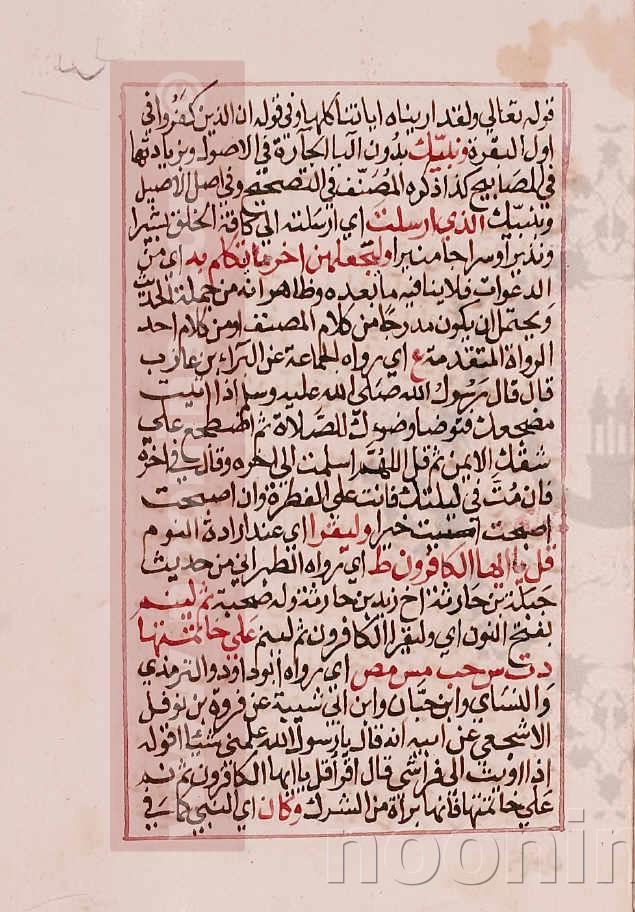 قوله تعالي ولقد اريناه اياتنا كلها وفي قوله ان الذين كفروا في
اول البقرة ونبيك بدون آلباء الجارة في الاصول وبزيادتها
في المصابيح كذا ذكره المصنف في التصحيح وفي اصل الاصيل
ونبيك الذي ارسلت اي ارسلته الي كافة الخلق بشيرا
ونذيرا وسراجا منيرا وليجعلهن اخر ما يتكلم به اي من
الدعوات فلا ينافيه ما بعده وظاهر انه من جملة الحديث
ويحتمل ان يكون مدرجا من كلام المصنف او من كلام احد
الرواة المتقدمة ع اي رواه الجماعة عن البراء بن عازب
قال قال رسول الله صلي الله عليه وسلم اذا اتيت
مضجعك فتوضا وضوءك للصلاة ثم اضطجع علي
شقك الايمن ثم قل اللهم اسلمت الي اخره وقال في اخره
فان مت في ليلتك فانت علي الفطرة وان اصبحت
اصبت خيرا وليقرا اي عند ارادة النوم
قل يا ايها الكافرون ط اي رواه الطبراني من حديث
جبلة بن حارثة اخ زيد بن حارثة وله صحبة ثم لينم
بفتح النون اي وليقرا الكافرون ثم لينم علي خاتمتها
د ت س حب مس مص اي رواه ابو داود والترمذي
والنساي وابن حبان وابن ابي شيبة عن فروة بن نوفل
الاشجعي عن ابيه انه قال يا رسول الله علمني شيئا اقوله
اذا اويت الي فراشي قال اقرا قل يا ايها الكافرون ثم نم
علي خاتمتها فانها براة من الشرك وكان اي النبي كما في
noonin